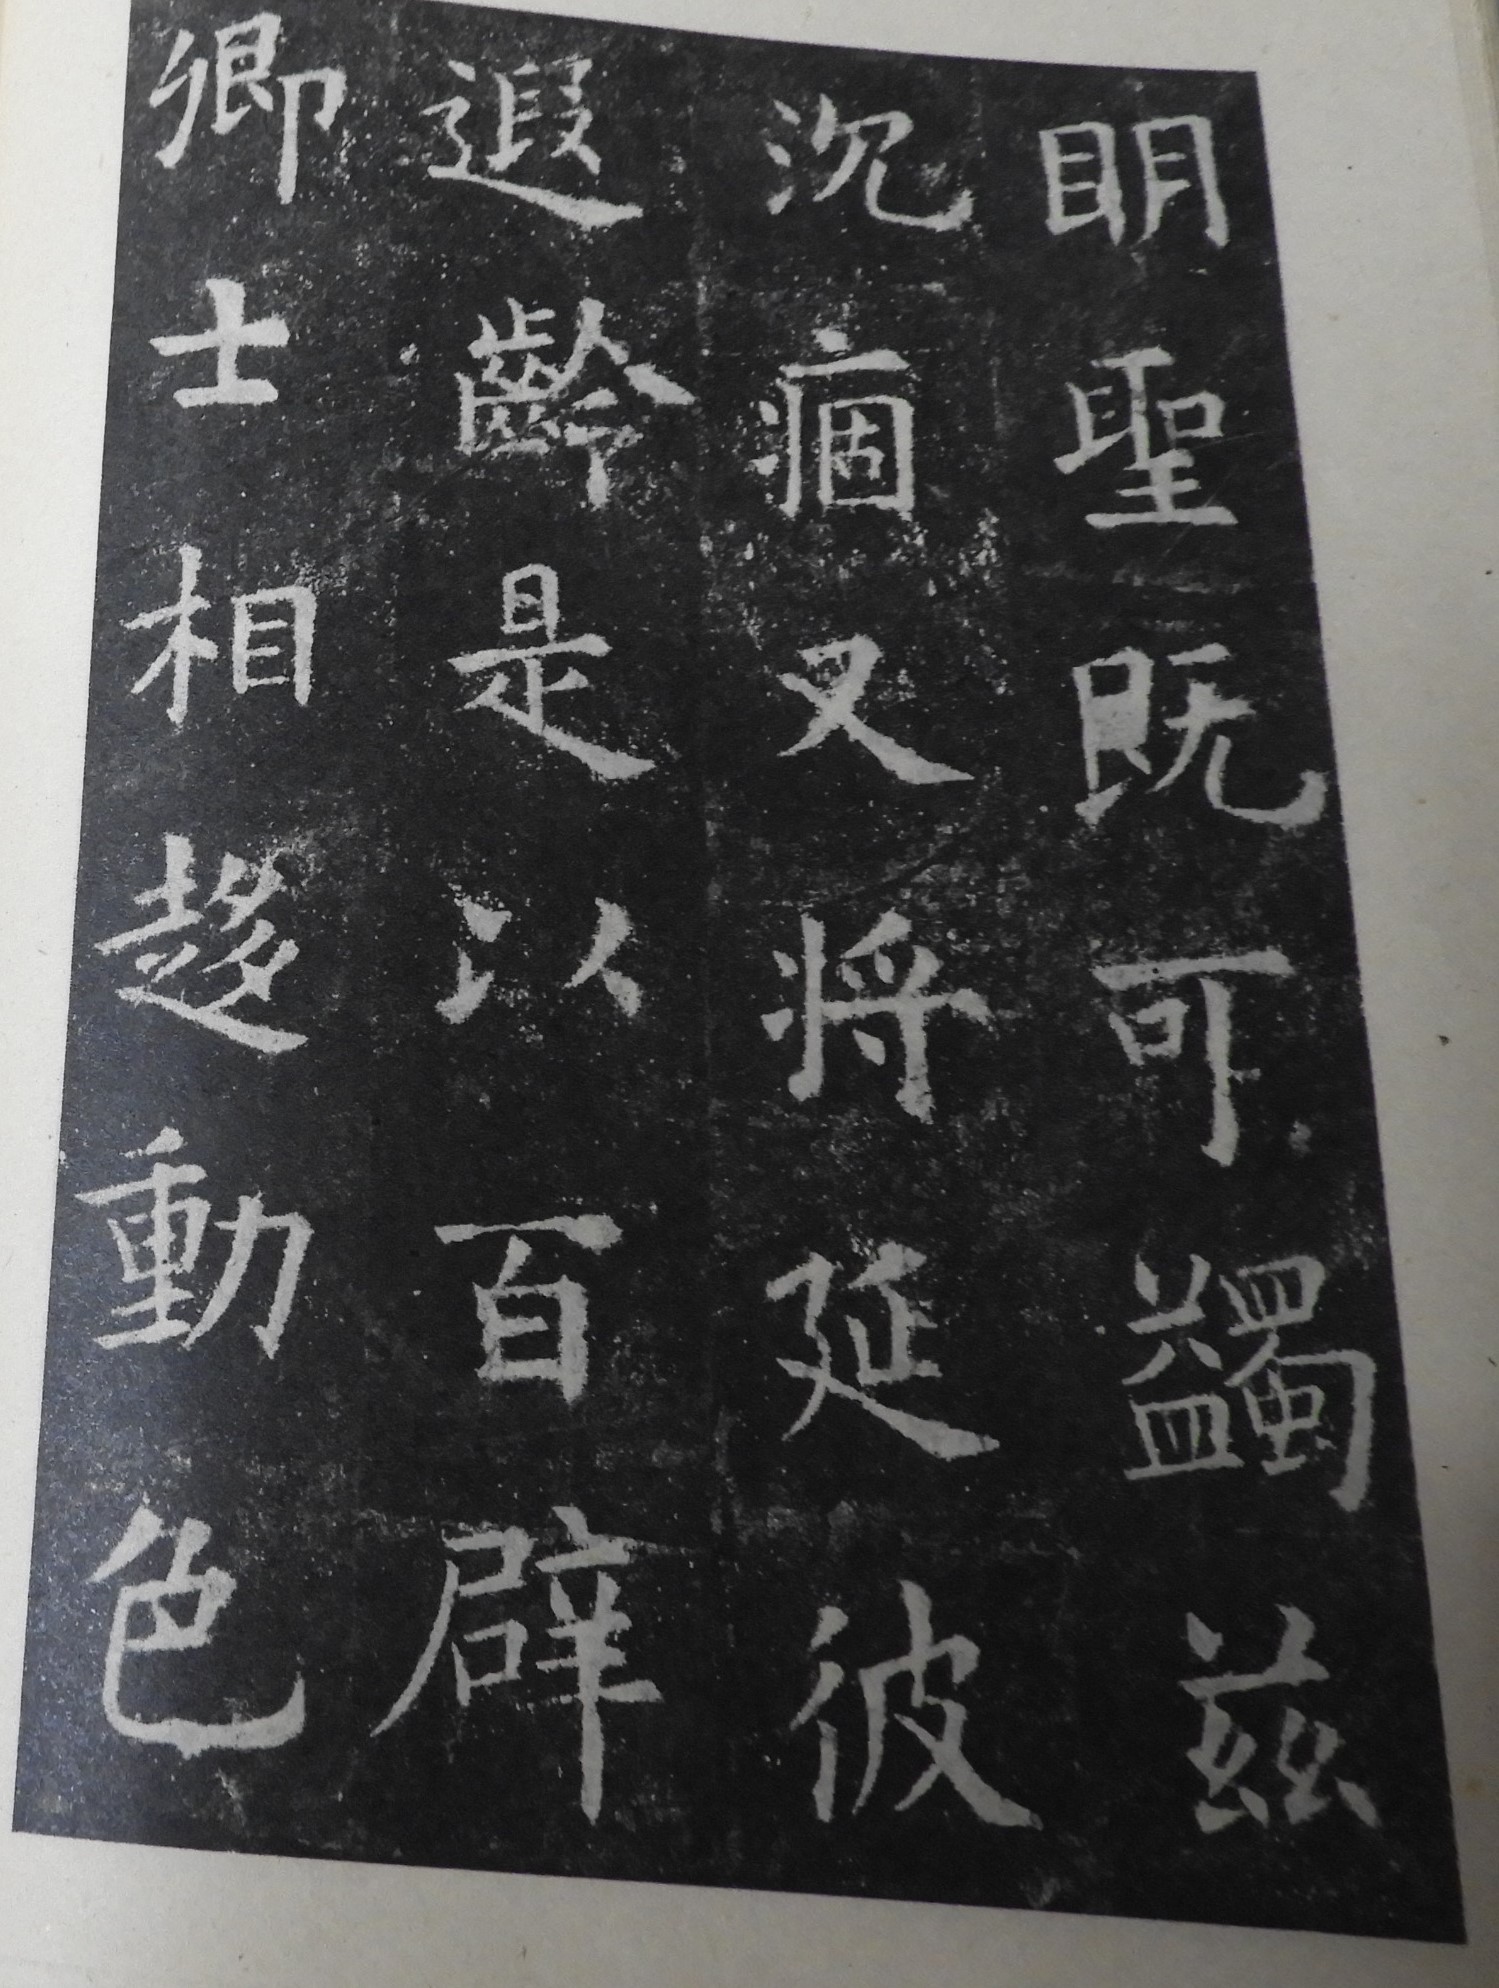 明聖既可蠲兹
沉痼又将延彼
遐齡是以百辟
卿士相趍動色